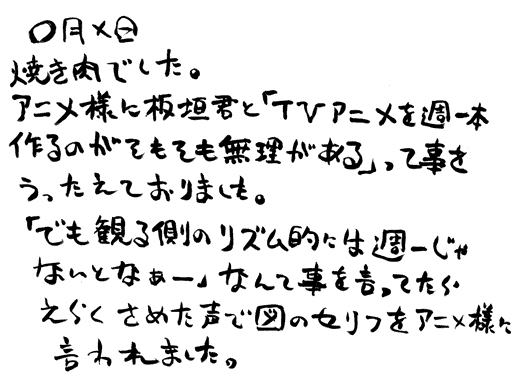 〇月×日
焼き肉でした。
アニメ様に板垣君と「TVアニメを週一本
作るのがそもそも無理がある」って事を
うったえておりました。
「でも観る側のリズム的には週一じゃ
ないとなぁー」なんて事を言ってたら
えらくさめた声で図のセリフをアニメ様に
言われました。